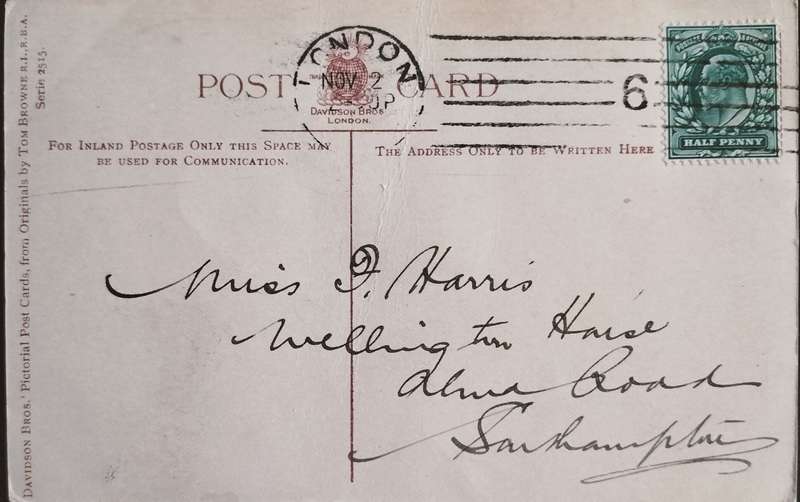 DAVIDSON BROS.' Pictorial Post Cards, from Originals by TOM BROWNE R.I., R.B.A.
Serie 2515.
POST CARD
DAVIDSON BROS
LONDON.
LONDON
NOV 2
6
HALF PENNY
FOR INLAND POSTAGE ONLY THIS SPACE MAY
BE USED FOR COMMUNICATION.
THE ADDRESS ONLY TO BE WRITTEN HERE
Miss F. Harris
Wellington House
Alma Road
Southampton